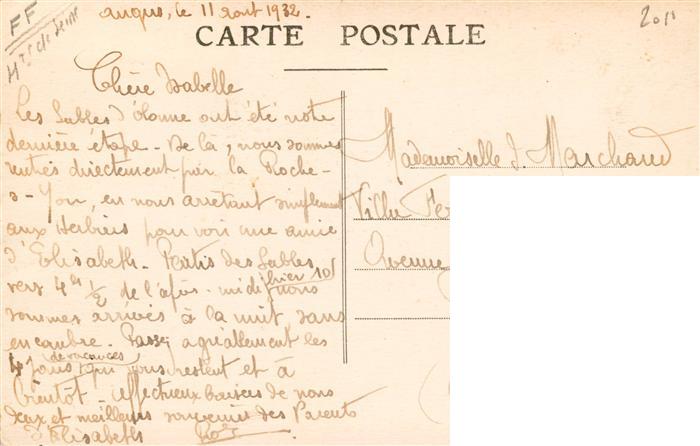 FF
Hts de Seine
angers, le 11 août 1932.
2011
CARTE POSTALE
Chère Isabelle
Les Sables d'Olonne ont été notre
dernière étape - De là, nous sommes
rentrés directement par la Roche-
s-Yon, en nous arrêtant simplement
aux Herbiers pour voir une amie
d'Elisabeth - Partis des Sables
vers 4hs 1/2 de l'après-midi (hier 10) nous
sommes arrivés à la nuit, sans
encombre. Passez agréablement les
4 jours de vacances qui vous restent et à
bientôt. Affectueux baisers de nous
deux et meilleurs souvenirs des Parents
d'Elisabeth
Mademoiselle I. Marchand
Villa
Avenue